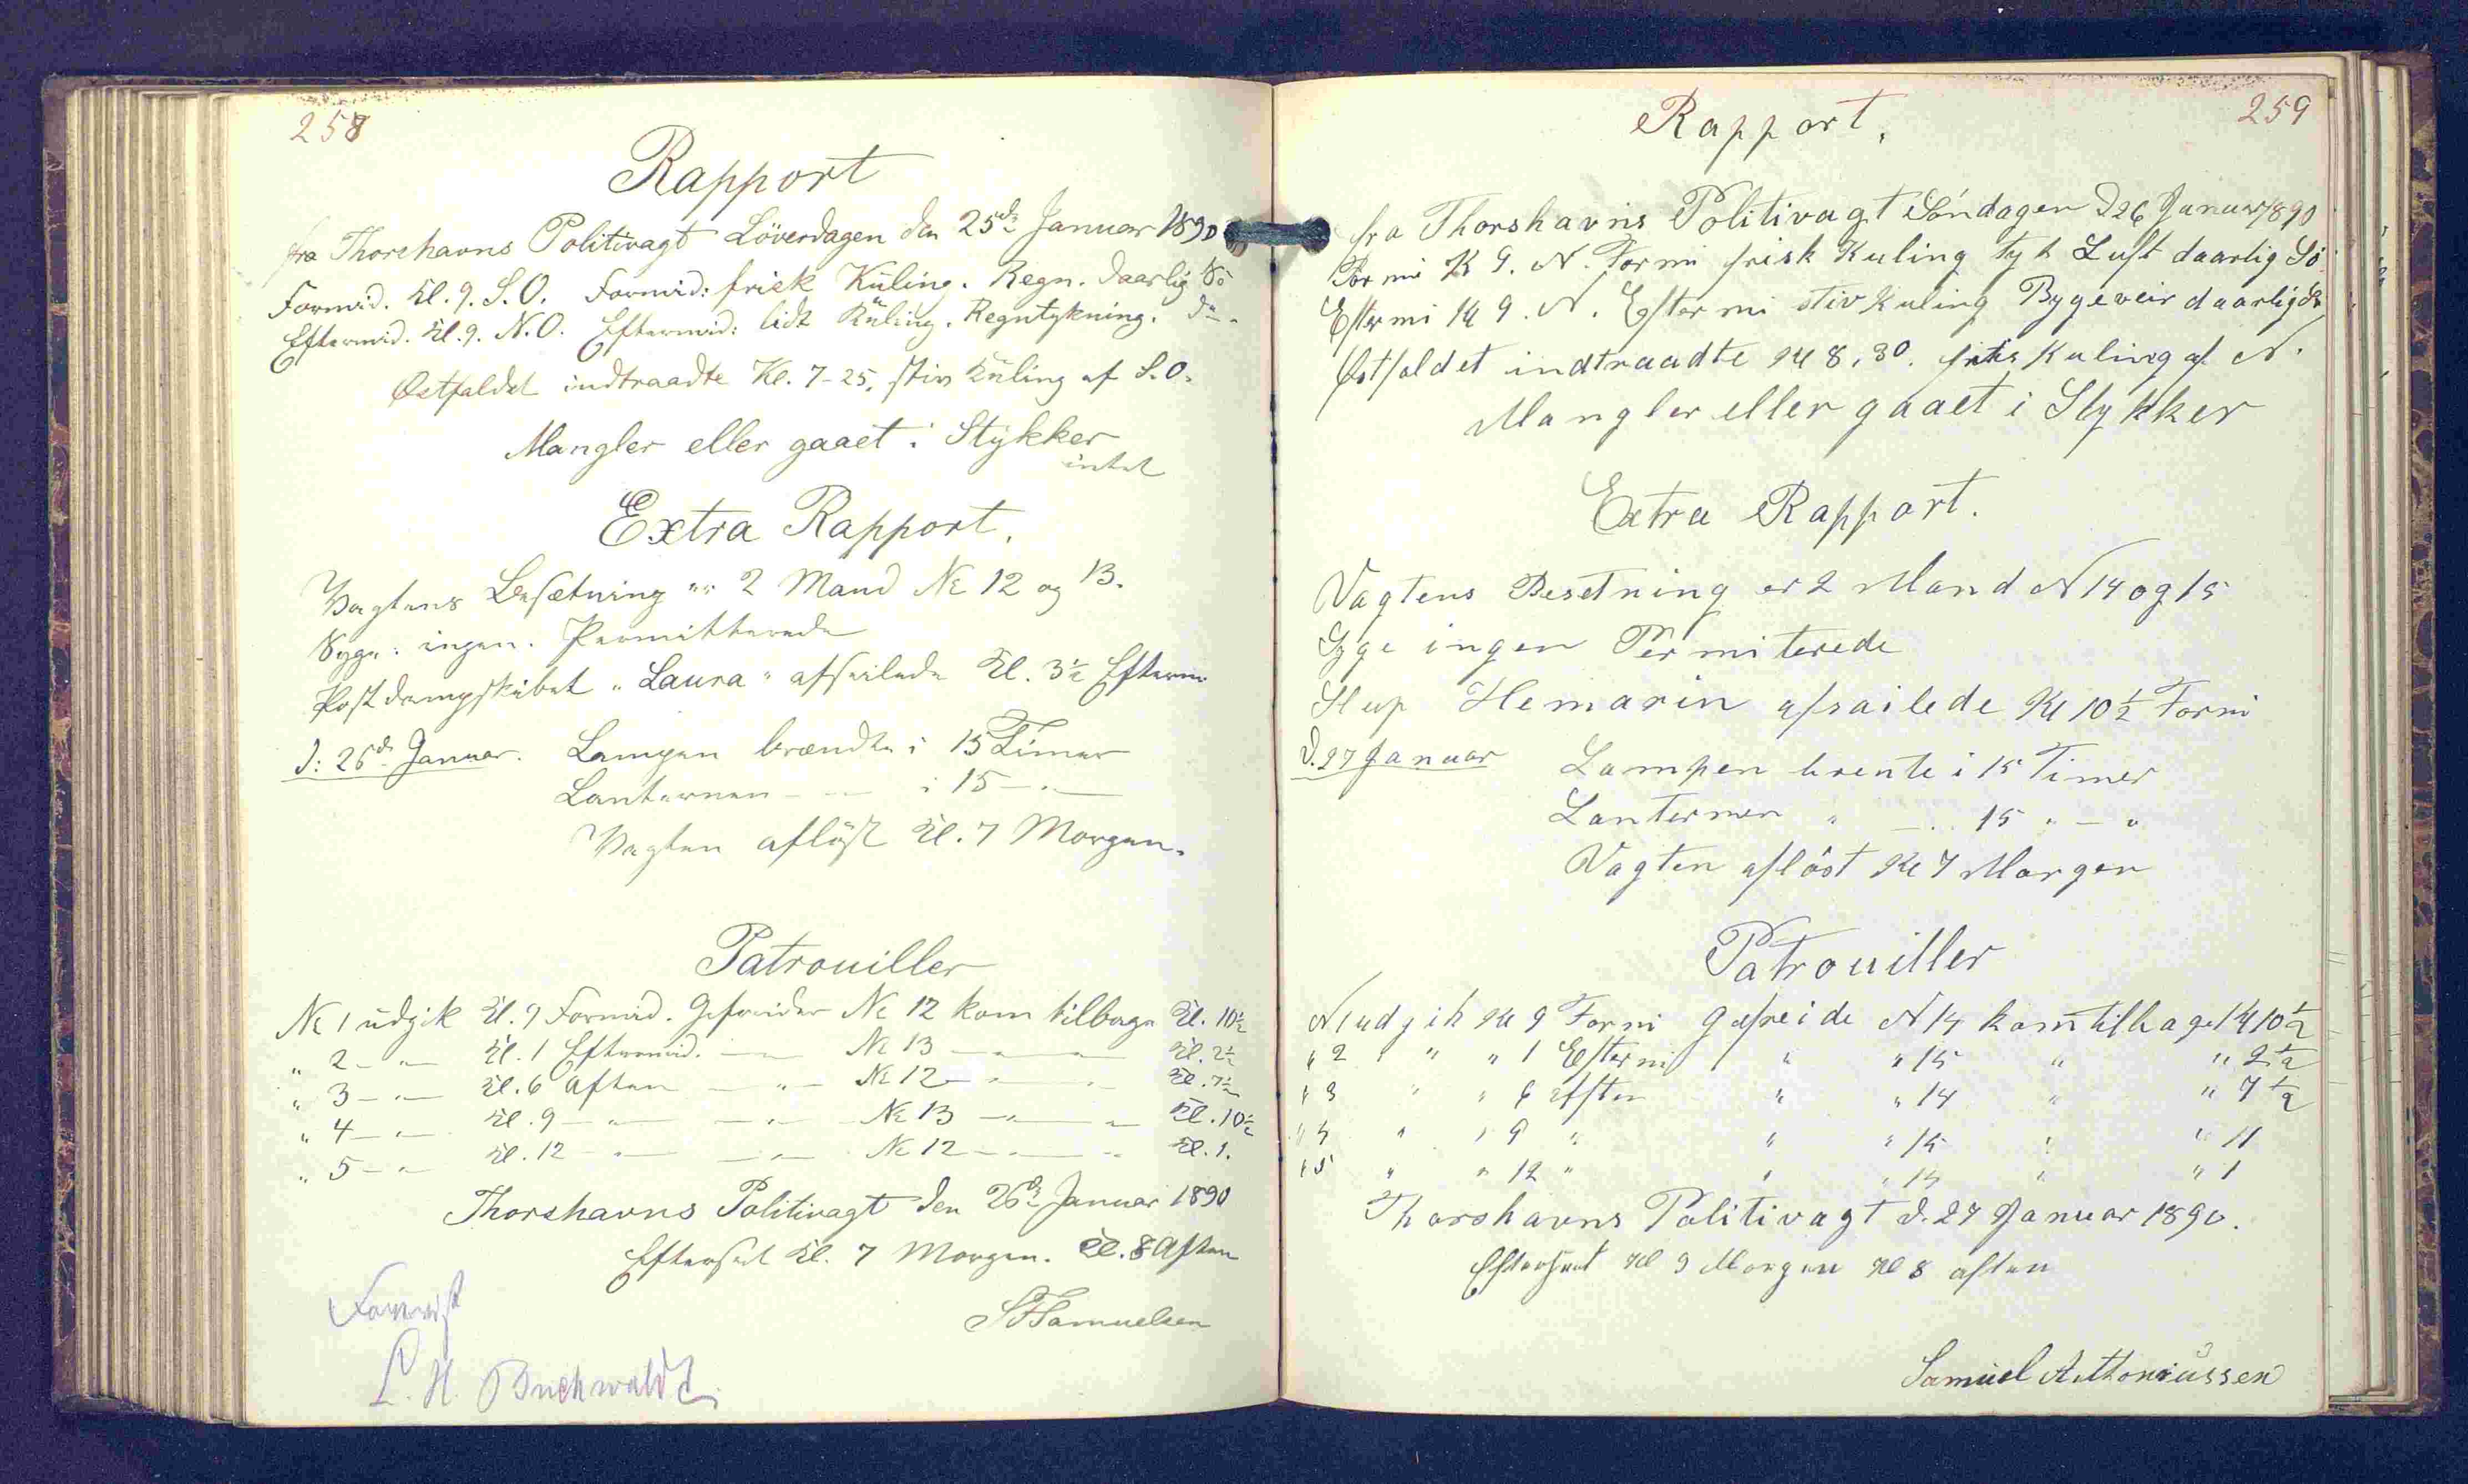 258
Rapport
fra Thorshavns Politivagt Löverdagen den 25de Januar 1890
Formid. Kl. 9. S.O. Formid: frisk Kuling. Regn. daarlig Sö
Eftermid. Kl. 9. N.O. Eftermid: lidt Kuling. Regntykning. do.
Østfaldet indtraadte Kl. 7-25, stiv Kuling af S.O.
Mangler eller gaaet i Stykker
intet
Extra Rapport.
Vagtens Besætning er 2 Mand No 12 og 13.
Syge: ingen. Permitterede
Postdampskibet "Laura" afseilede Kl. 3½ Efterm
d: 26de Januar. Lampen brændte i 15 Timer
Lanternen - " - i 15 - " -
Vagten aflöst Kl. 7 Morgen.
Patrouiller
No 1 udgik Kl. 9 Formid. Gefreider No 12 kom tilbage Kl. 10½
" 2 - " - Kl. 1 Eftermid. - " - No 13 - " - " - Kl. 2½
" 3 - " - Kl. 6 Aften - " - No 12 - " - " - Kl. 7½
" 4 - " - Kl. 9 - " - - " - No 13 - " - " - Kl. 10½
" 5 - " - Kl. 12 - " - - " - No 12 - " - " - Kl. 1.
Thorshavns Politivagt den 26de Januar 1890
Efterseet Kl. 7 Morgen. Kl. 8 Aften
Forevist
SFSamuelsen
L. H. Buchwaldt
259
Rapport.
fra Thorshavns Politivagt Söndagen d 26 Januar 1890
For mi Kl 9. N. For mi frisk Kuling tyk Luft daarlig Sö
Efter mi Kl 9. N. Efter mi stiv kuling Bygeveir daarlig do
Østfaldet indtraadte Kl 8,30. frisk Kuling af N.
Mangler eller gaaet i Stykker
Extra Rapport.
Vagtens Besetning er 2 Mand N 14 og 15
Syge ingen Permiterede
Slup Hemarin afsailede Kl 10½ Formi
d. 27 Januar Lampen brente i 15 Timer
Lanternen " - " 15 " - "
Vagten aflöst Kl 7 Morgen
Patrouiller
N 1 udgik Kl 9 Formi Gefreide N 14 kom tilbage Kl 10½
" 2 " " " 1 Eftermi " " 15 " " 2½
" 3 " " 6 Aften " " 14 " " 7½
" 4 " " 9 " " " 15 " " 11
" 5 " " 12 " " " 14 " " 1
Thorshavns Politivagt d. 27 Januar 1890.
Efterseet Kl 9 Morgen Kl 8 aften
Samuel Anthoniussen